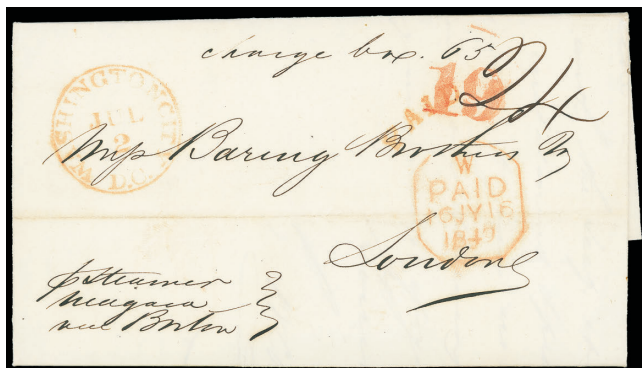 charge box. 65
WASHINGTON CITY
JUL
2
D.C.
PAID
10
24
Messrs Baring Brothers &
W
PAID
16JY16
1849
London
p steamer
Niagara
via Boston